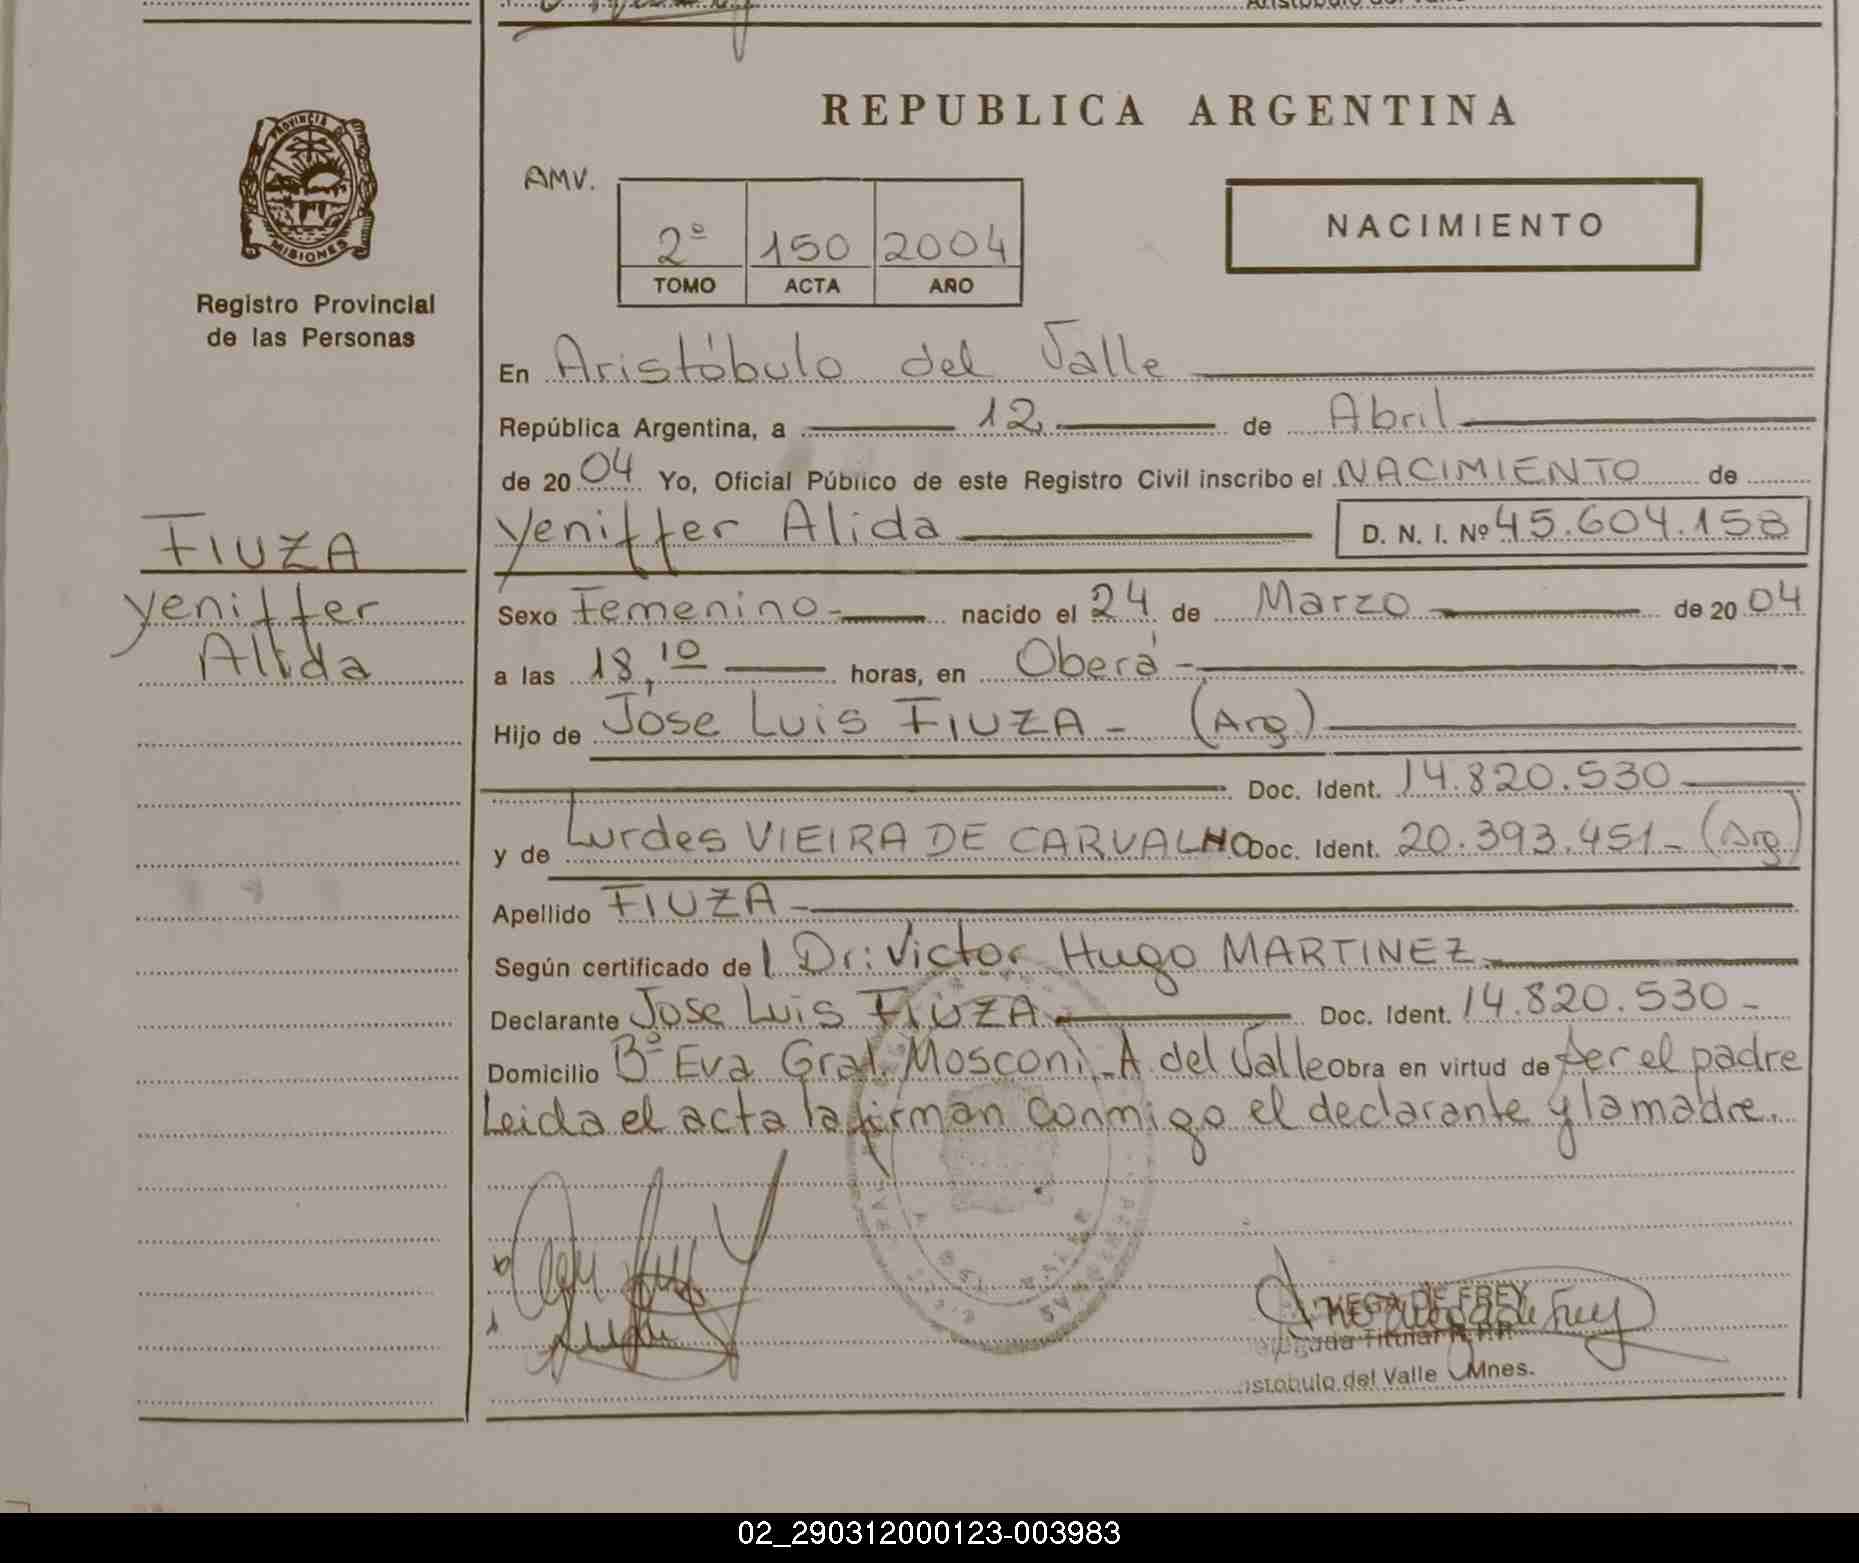 REPUBLICA ARGENTINA
PROVINCIA DE
MISIONES
Registro Provincial
de las Personas
AMV.
2º 150 2004
TOMO ACTA AÑO
NACIMIENTO
En Aristóbulo del Valle
República Argentina, a 12 de Abril
de 2004 Yo, Oficial Público de este Registro Civil inscribo el NACIMIENTO de
FIUZA
Yeniffer
Alida
Yeniffer Alida D. N. I. Nº 45.604.158
Sexo Femenino- nacido el 24 de Marzo de 2004
a las 18,10 horas, en Oberá-
Hijo de Jose Luis FIUZA - (Arg)
Doc. Ident. 14.820.530
y de Lurdes VIEIRA DE CARVALHO Doc. Ident. 20.393.451- (Arg)
Apellido FIUZA-
Según certificado de l Dr: Victor Hugo MARTINEZ
Declarante Jose Luis FIUZA Doc. Ident. 14.820.530-
Domicilio Bº Eva Gral. Mosconi-A. del Valle Obra en virtud de ser el padre
Leida el acta la firman conmigo el declarante y la madre.
VEGA DE FREY
Titular R.P.P.
del Valle Mnes.
02_290312000123-003983